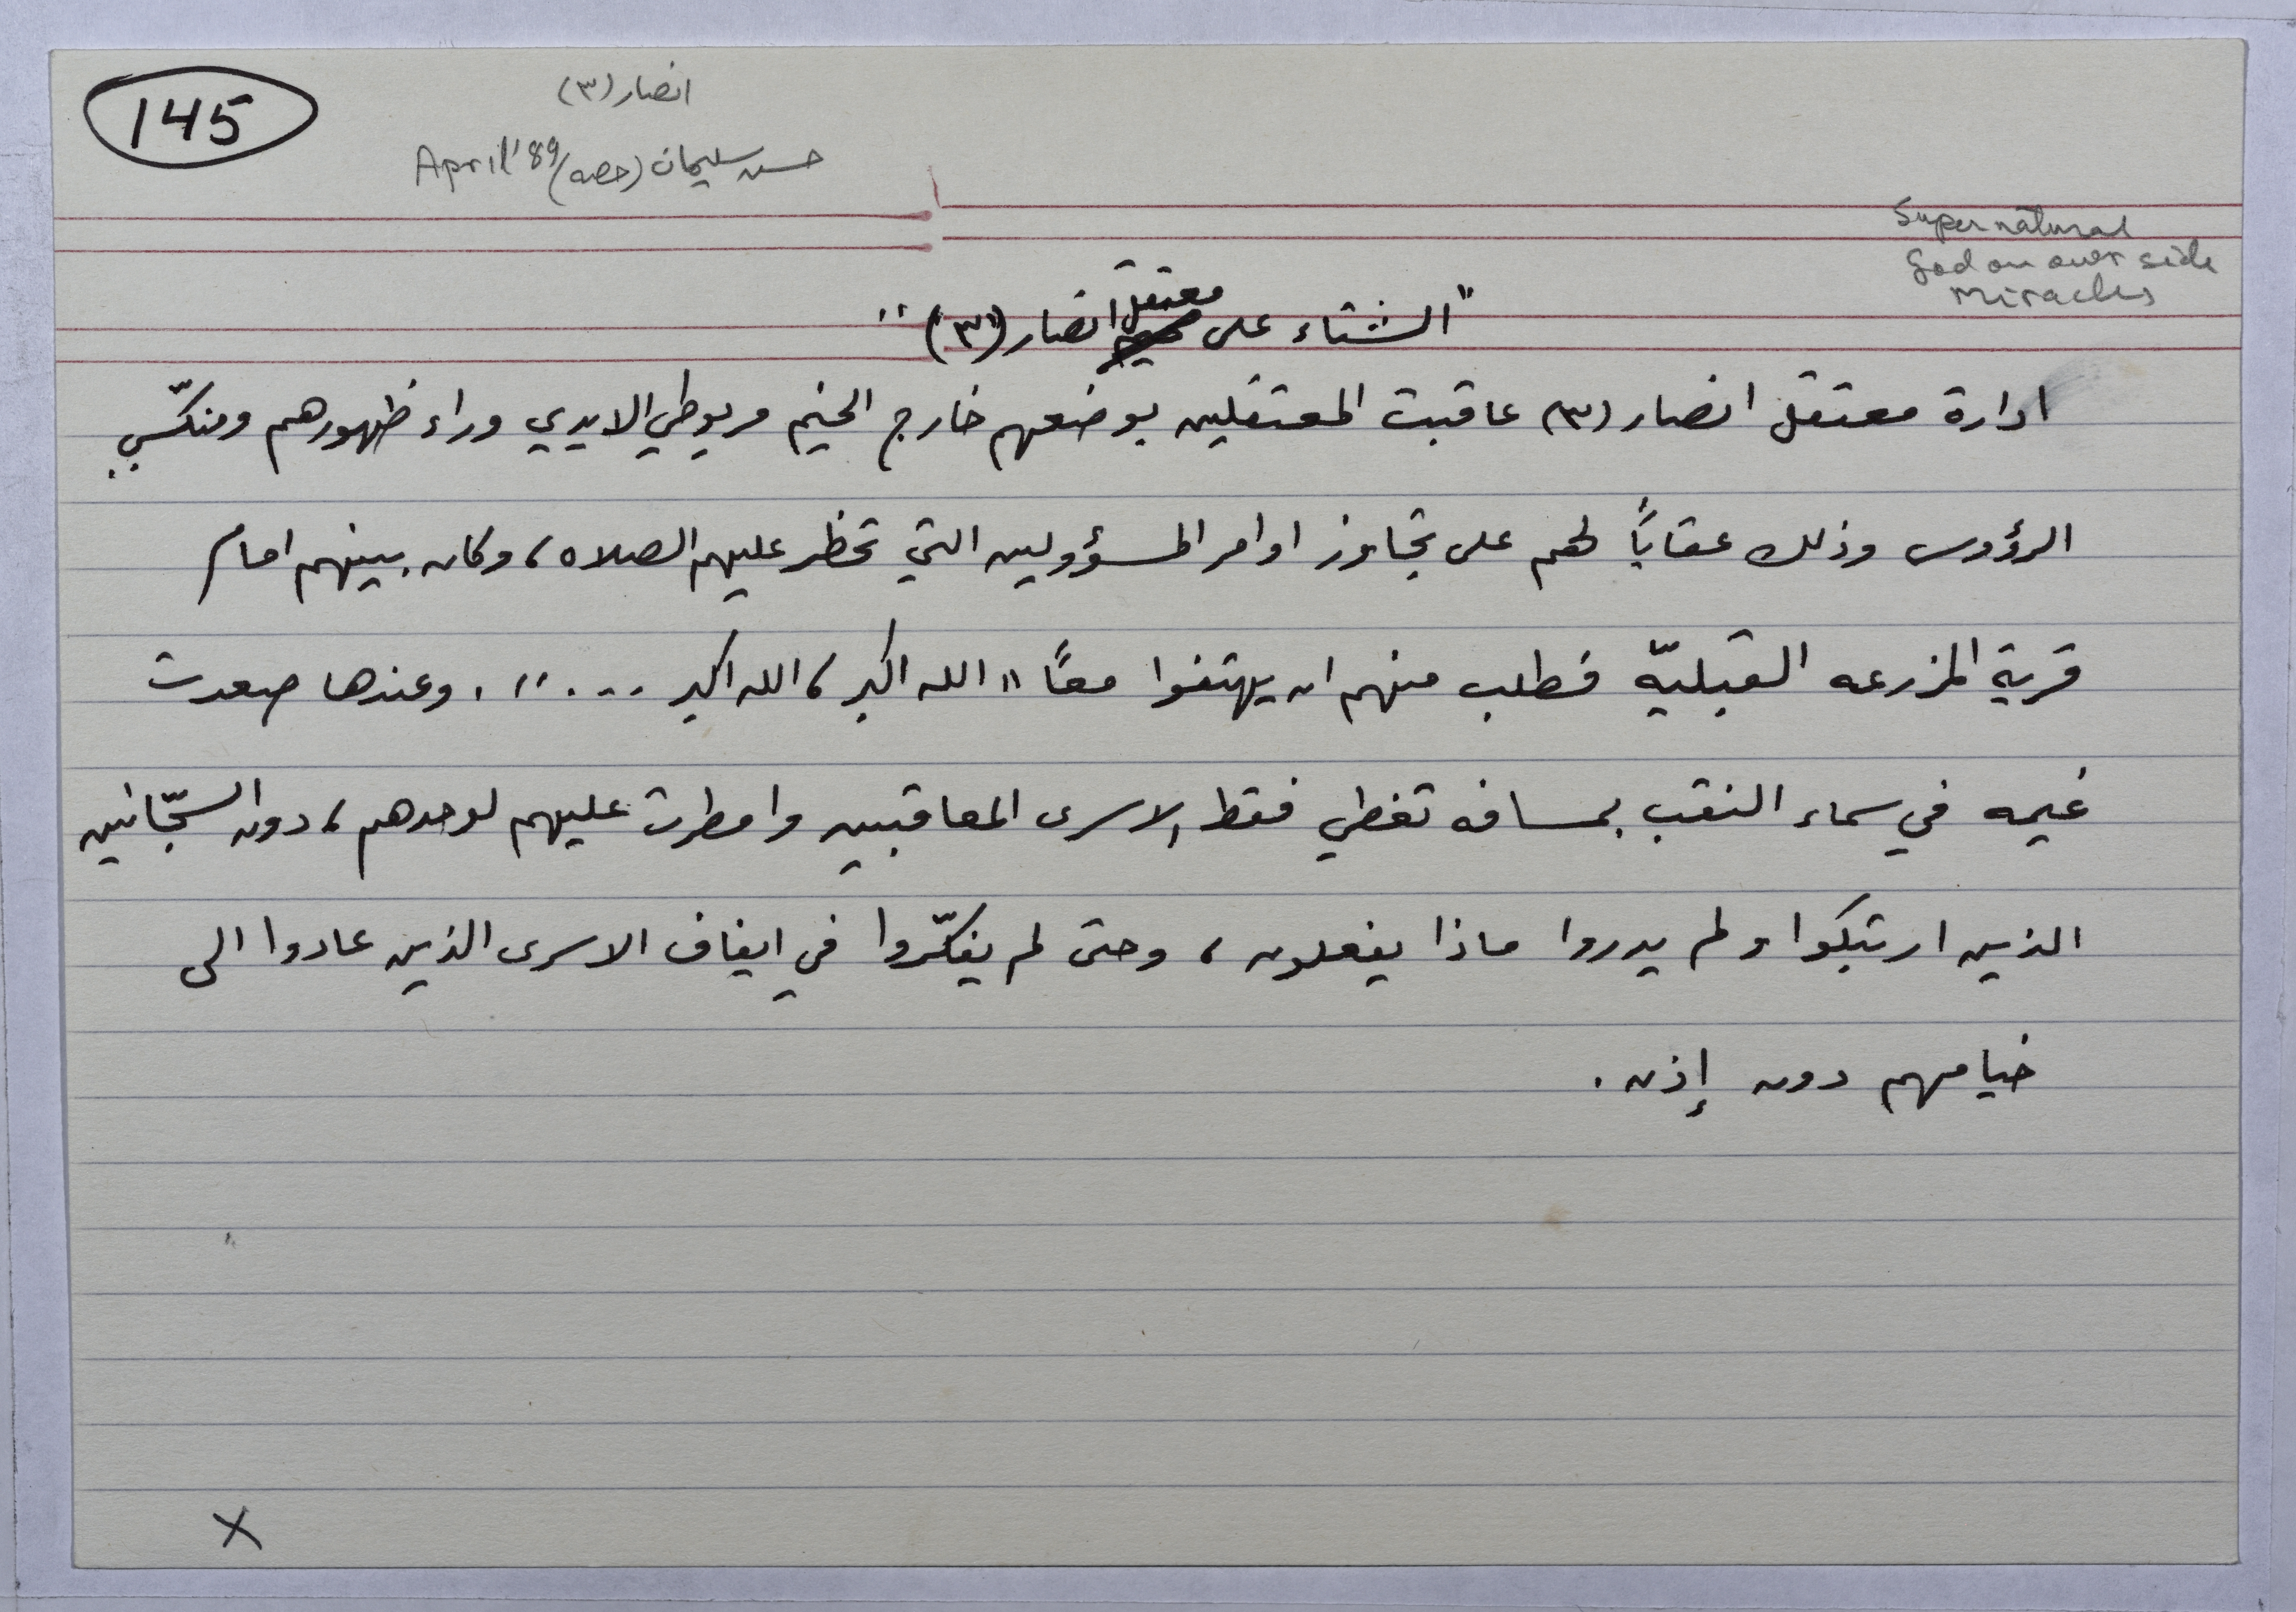 145
انصار (٣)
حسن سليمان (حصه) April '89
Supernatural
God on our side
Miracles
"الشتاء على معتقل انصار (٣)"
ادارة معتقل انصار (٣) عاقبت المعتقلين بوضعهم خارج الخيم مربوطي الايدي وراء ظهورهم ومنكّسي
الرؤوس وذلك عقابًا لهم على تجاوز اوامر المسؤولين التي تحظر عليهم الصلاه، وكان بينهم امام
قرية المزرعه القبليّه فطلب منهم ان يهتفوا معًا "الله اكبر، الله اكبر ....". وعندها صعدت
غيمه في سماء النقب بمسافه تغطي فقط الاسرى المعاقبين وامطرت عليهم لوحدهم، دون السجّانين
الذين ارتبكوا ولم يدروا ماذا يفعلون، وحتى لم يفكّروا في ايقاف الاسرى الذين عادوا الى
خيامهم دون إذن.
X